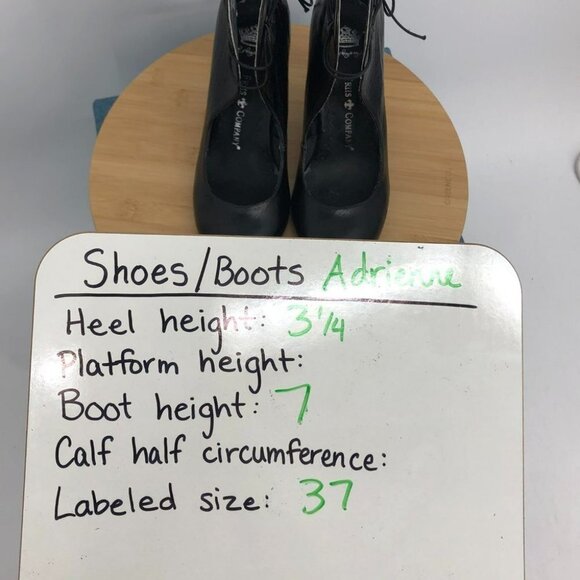 COMPANY
COMPANY
Shoes/Boots Adrienne
Heel height: 3 1/4
Platform height:
Boot height: 7
Calf half circumference:
Labeled size: 37